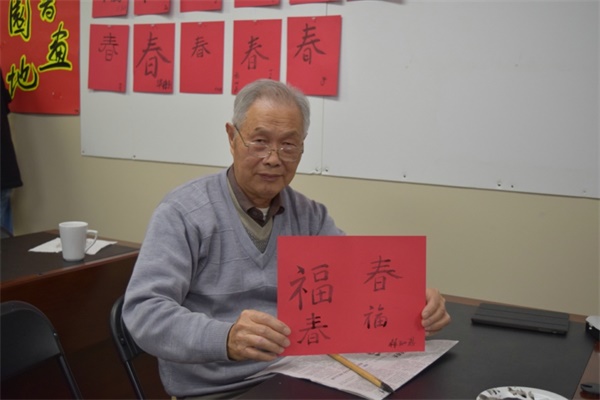 書畫
園地
春 春 春 春 春
福 春
春 福